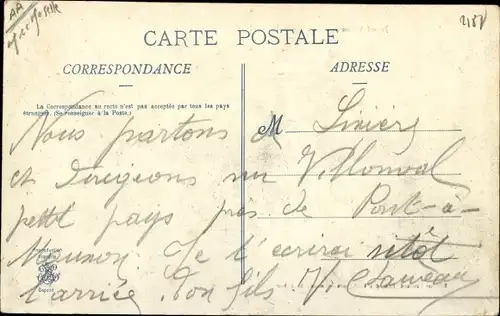 AA
CARTE POSTALE
CORRESPONDANCE
ADRESSE
La Correspondance au recto n'est pas acceptée par tous les pays
étrangers. (Se renseigner à la Poste.)
M
Nous partons
et dirigeons sur
petit pays près de Pont-à-
Mousson. Je t'écrirai sitôt
l'arrivée. Ton fils